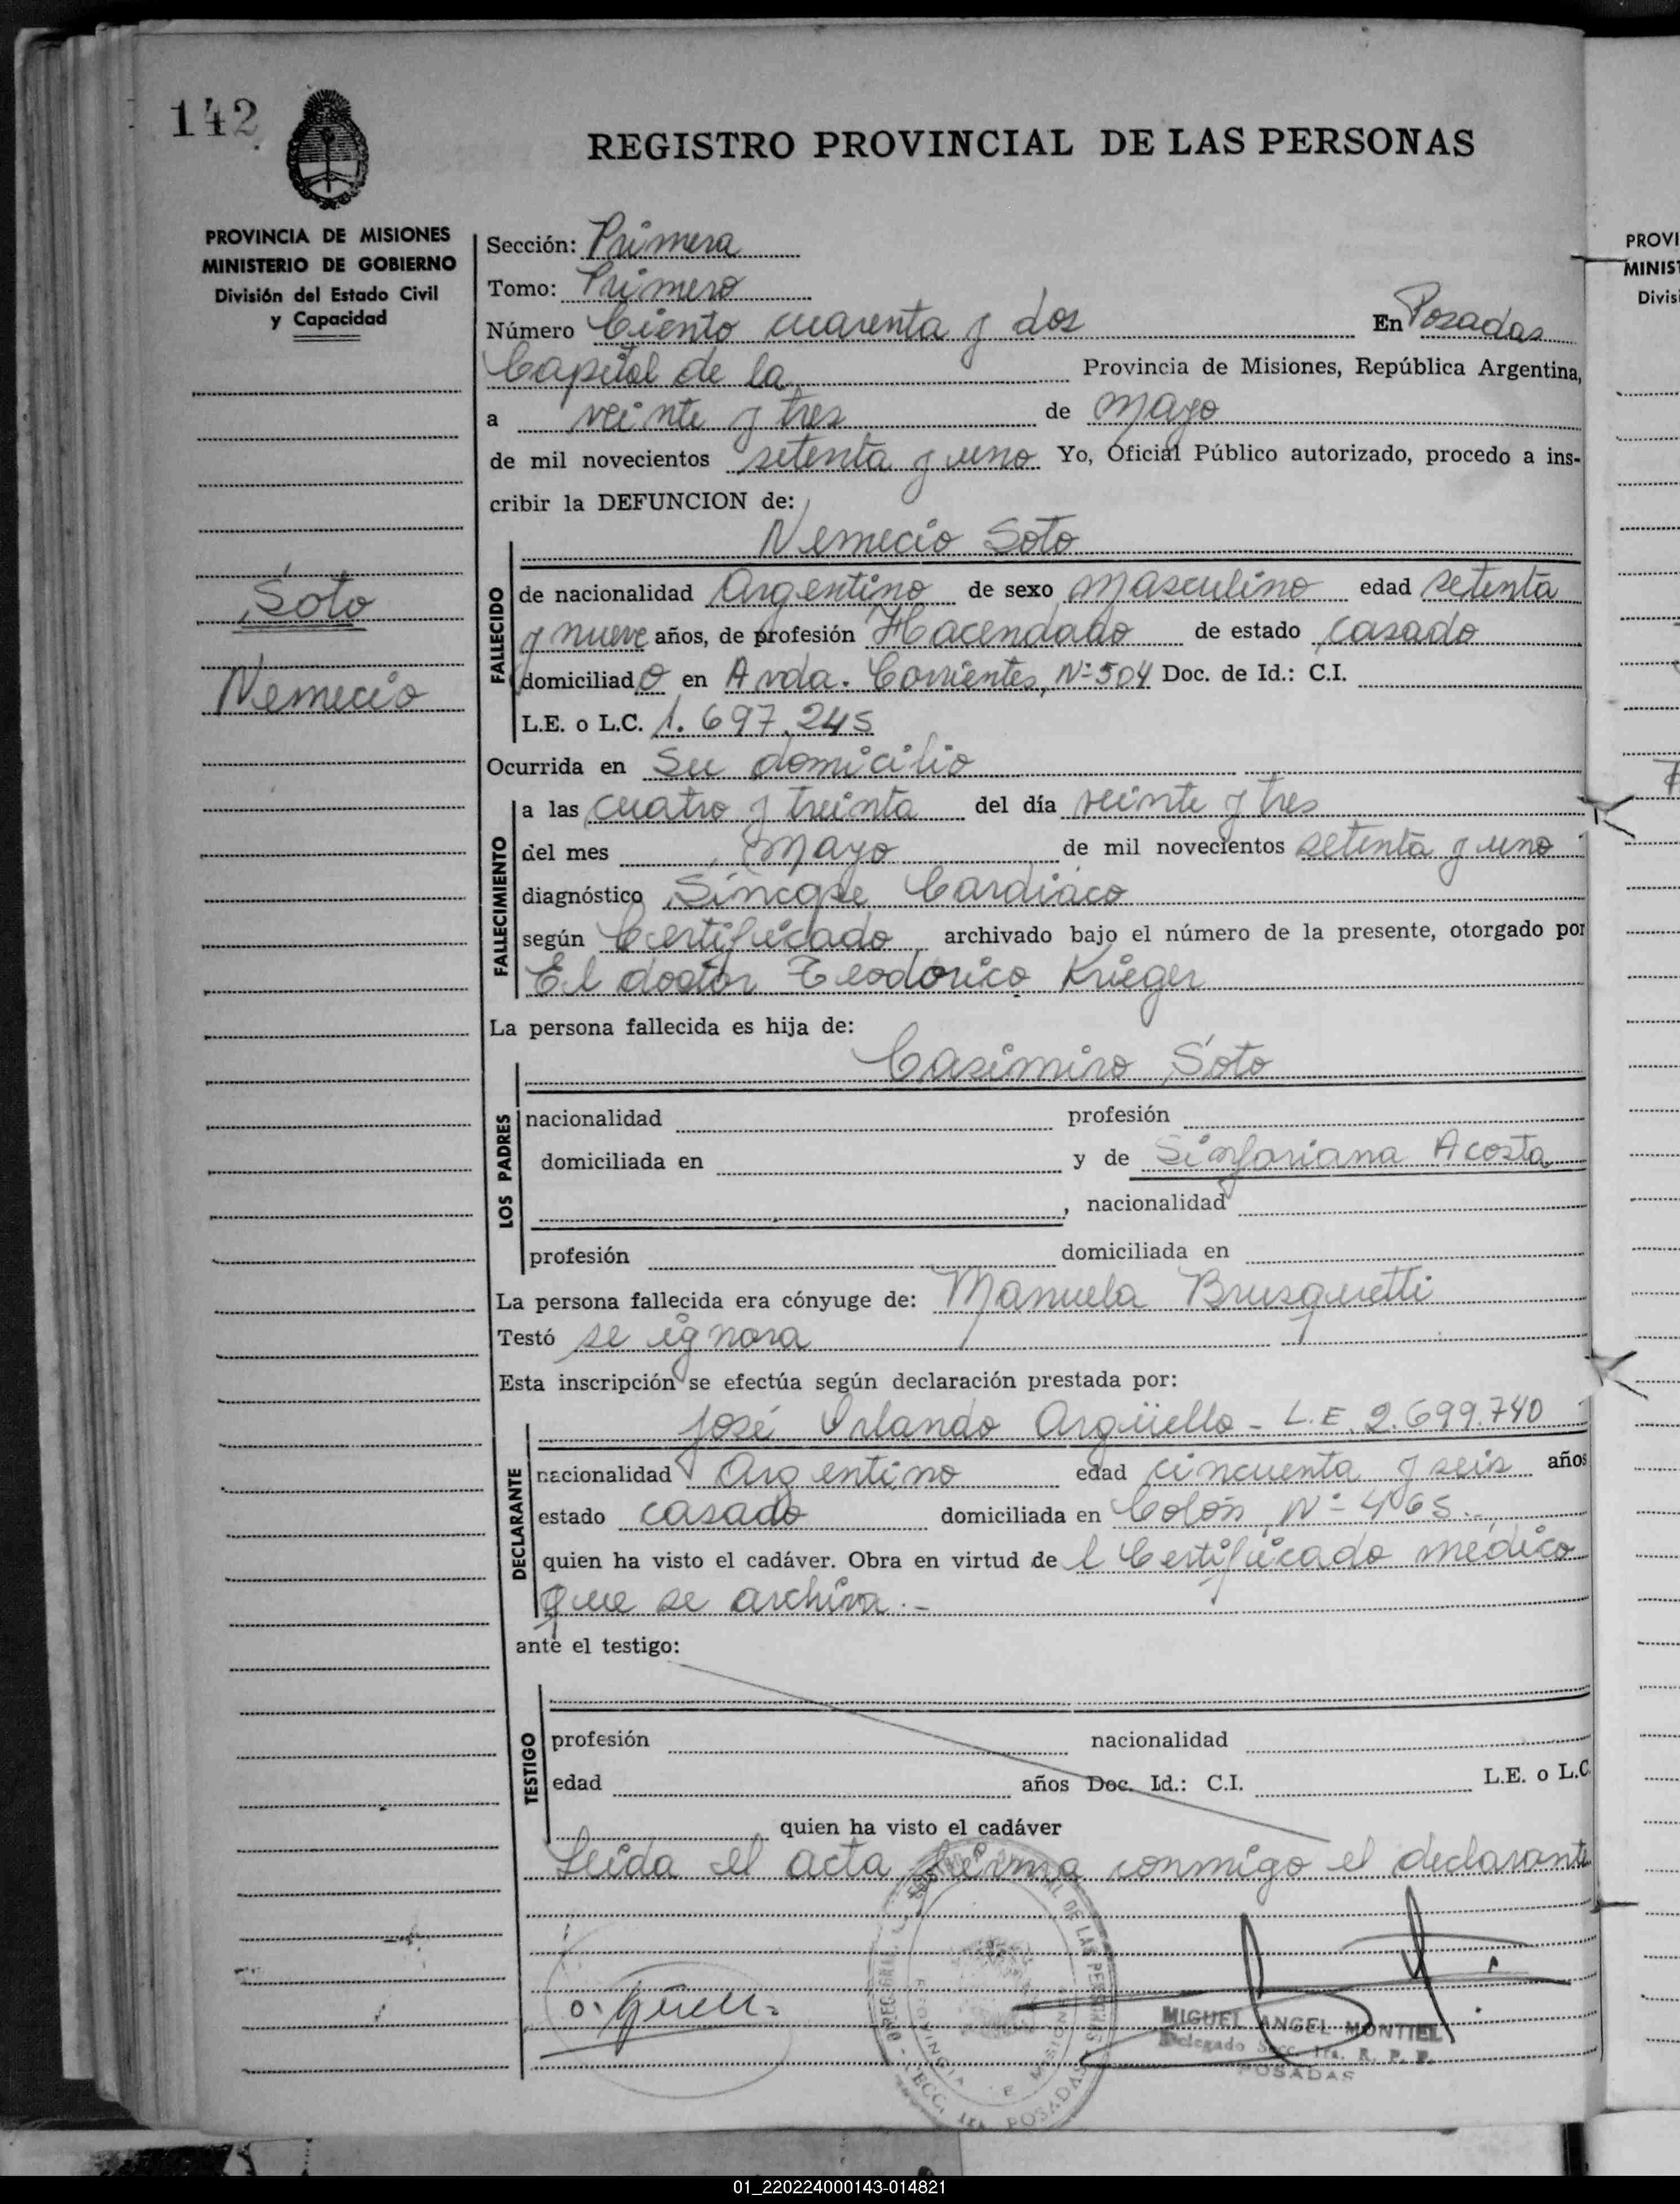 142
REGISTRO PROVINCIAL DE LAS PERSONAS
PROVINCIA DE MISIONES
MINISTERIO DE GOBIERNO
División del Estado Civil
y Capacidad
Soto
Nemecio
Sección: Primera
Tomo: Primero
Número Ciento cuarenta y dos En Posadas
Capital de la Provincia de Misiones, República Argentina,
a veinte y tres de Mayo
de mil novecientos setenta y uno Yo, Oficial Público autorizado, procedo a ins-
cribir la DEFUNCION de:
Nemecio Soto
FALLECIDO
de nacionalidad Argentino de sexo Masculino edad setenta
y nueve años, de profesión Hacendado de estado casado
domiciliado en Avda. Corrientes, Nº 504 Doc. de Id.: C.I.
L.E. o L.C. 1.697.245
Ocurrida en su domicilio
FALLECIMIENTO
a las cuatro y treinta del día veinte y tres
del mes Mayo de mil novecientos setenta y uno
diagnóstico Síncope Cardíaco
según Certificado archivado bajo el número de la presente, otorgado por
El doctor Teodorico Krieger
La persona fallecida es hija de:
Casimiro Soto
LOS PADRES
nacionalidad profesión
domiciliada en y de Sinforiana Acosta
, nacionalidad
profesión domiciliada en
La persona fallecida era cónyuge de: Manuela Brusquetti
Testó se ignora
Esta inscripción se efectúa según declaración prestada por:
José Orlando Argüello - L.E. 2.699.740
DECLARANTE
nacionalidad Argentino edad cincuenta y seis años
estado casado domiciliada en Colón, Nº 465.
quien ha visto el cadáver. Obra en virtud de l Certificado médico
que se archiva.-
ante el testigo:
TESTIGO
profesión nacionalidad
edad años Doc. Id.: C.I. L.E. o L.C
quien ha visto el cadáver
Leída el acta firma conmigo el declarante
MIGUEL ANGEL MONTIEL
Delegado Secc. 1ra. R. P. P.
POSADAS
PROVI
MINIST
Divisi
01_220224000143-014821